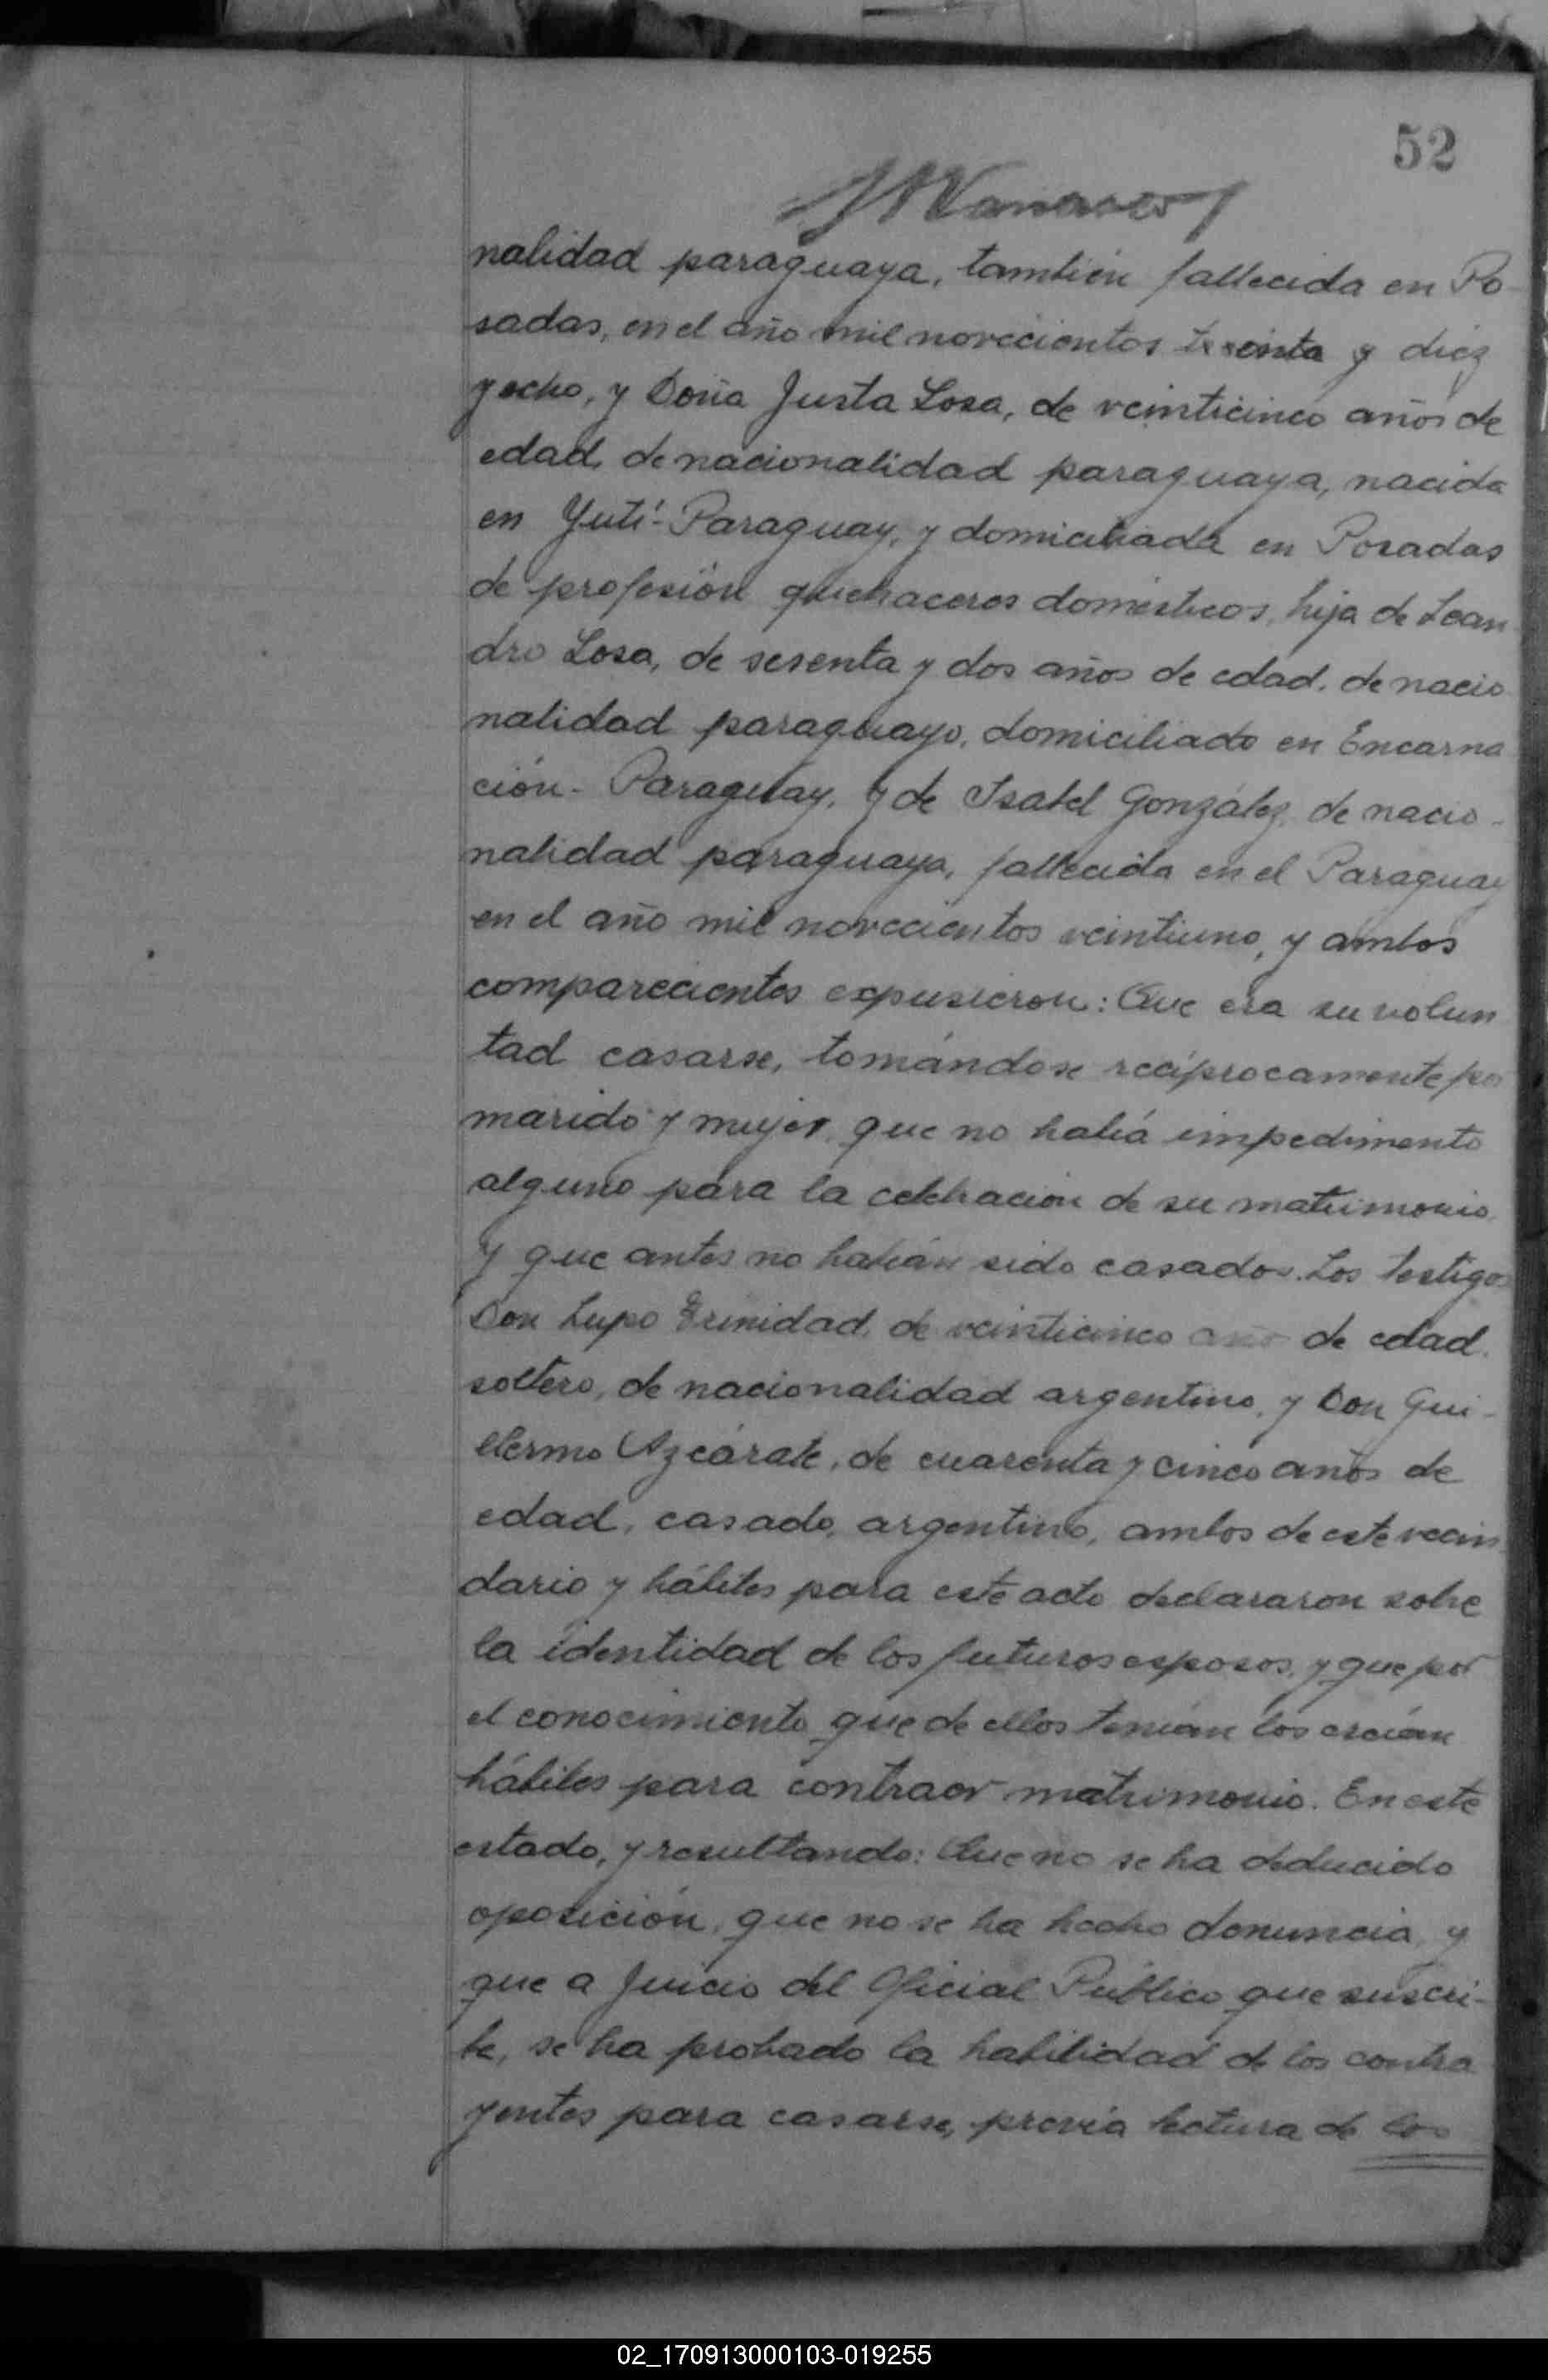 52
nalidad paraguaya, también fallecida en Po
sadas, en el año mil novecientos treinta y diez
y ocho, y Doña Justa Sosa, de veinticinco años de
edad, de nacionalidad paraguaya, nacida
en Yutí-Paraguay, y domiciliada en Posadas
de profesión quehaceres domésticos, hija de Lean
dro Sosa, de sesenta y dos años de edad, de nacio
nalidad paraguayo, domiciliado en Encarna
ción - Paraguay, y de Isabel González, de nacio-
nalidad paraguaya, fallecida en el Paraguay
en el año mil novecientos veintiuno, y ambos
comparecientes expusieron: Que era su volun
tad casarse, tomándose recíprocamente por
marido y mujer, que no había impedimento
alguno para la celebración de su matrimonio
y que antes no habían sido casados. Los testigos
Don Lupo Trinidad, de veinticinco años de edad,
soltero, de nacionalidad argentino, y Don Gui-
llermo Azcárate, de cuarenta y cinco años de
edad, casado, argentino, ambos de este vecin
dario y hábiles para este acto declararon sobre
la identidad de los futuros esposos, y que por
el conocimiento que de ellos tenían los creían
hábiles para contraer matrimonio. En este
estado, y resultando: Que no se ha deducido
oposición, que no se ha hecho denuncia, y
que a juicio del Oficial Público que suscri-
be, se ha probado la habilidad de los contra
yentes para casarse, previa lectura de los
02_170913000103-019255